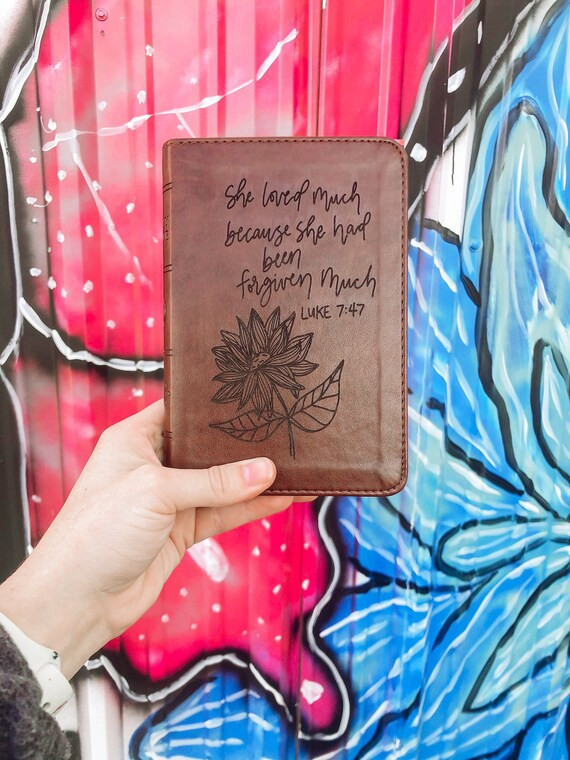 She loved much
because she had
been
forgiven much
LUKE 7:47